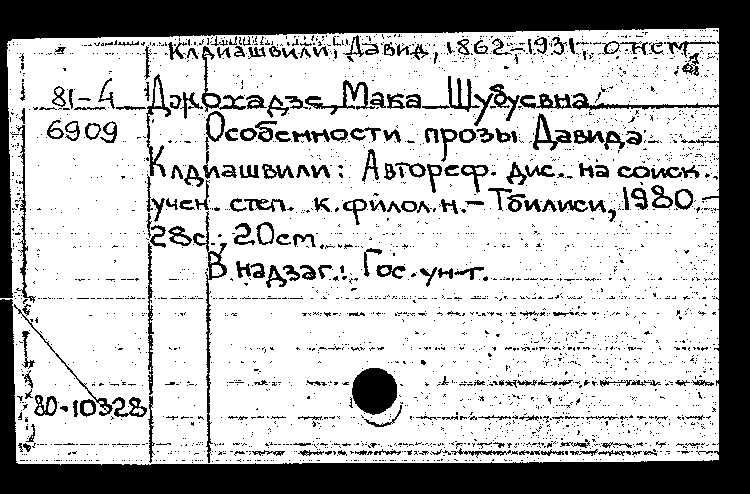 Клдиашвили, Давид, 1862-1931, о нем
81-4 Джохадзе, Мака Шубуевна
6909 Особенности прозы Давида
Клдиашвили: Автореф. дис. на соиск.
учен. степ. к. филол. н. - Тбилиси, 1980. -
28с.; 20см.
В надзаг.: Гос. ун-т.
80-10328